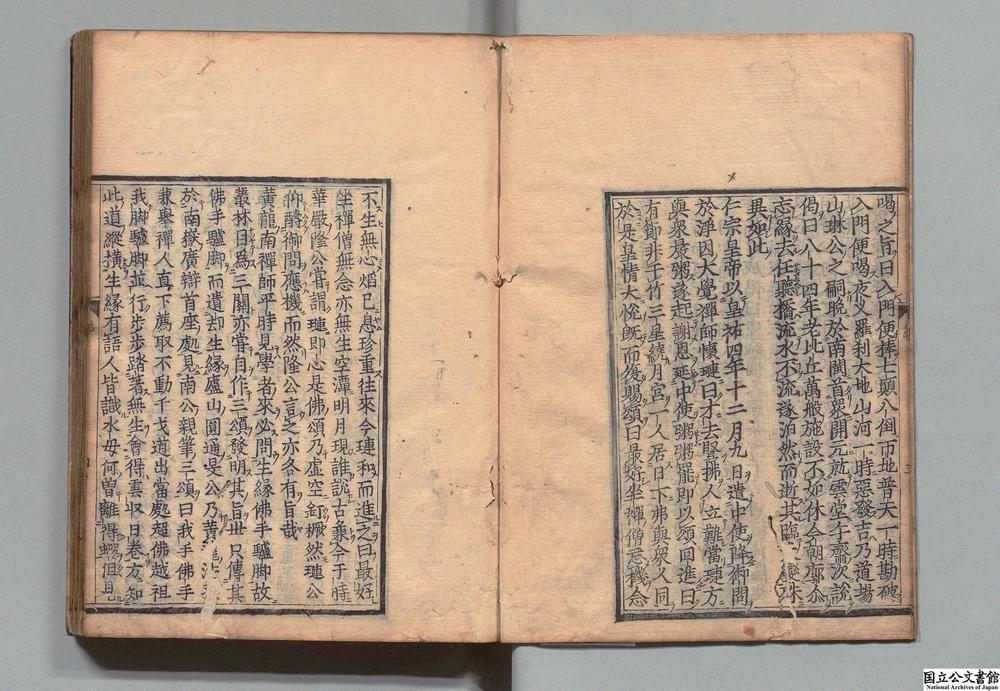 喝之旨曰入門便捧七顛八倒帀地普天一時勘破
入門便喝夜叉羅刹大地山河一時惡發吉乃道場
山琳公之嗣晩於南閩首衆開元就雲堂午齋次說
偈曰八十四年老比丘萬般施設不如休今朝廓尒
忘緣去任聽橋流水不流遂泊然而逝其臨變殊
異如此
仁宗皇帝以皇祐四年十二月九日遣中使降御問
於淨因大覺禪師懷璉曰才去竪拂人立難當璉方
與衆晨粥遂起謝恩延中使粥粥罷即以頌回進曰
有節非干竹三星繞月宮一人居日下弗與衆人同
於是皇情大悅旣而復賜頌曰最好坐禪僧忘機念
不生無心焰已息珍重往來今璉和而進之曰最好
坐禪僧無念亦無生空潭明月現誰說古兼今于時
華嚴隆公嘗謂璉即心是佛頌乃虛空釘橛然璉公
仰醻御問應機而然隆公言之亦各有旨哉
黄龍南禪師平時見學者來必問生緣佛手驢脚故
叢林目爲三關亦嘗自作三頌發明其旨丗只傳其
佛手驢脚而遺却生緣廬山圓通旻公乃黄
於南嶽廣辯首座處見南公親筆三頌曰我手佛手
兼舉禪人直下薦取不動干戈道出當處超佛越祖
我脚驢脚並行步步踏著無生會得雲収日卷方知
此道縱横生緣有語人皆識水母何曽離得蝦但見
国立公文書館
National Archives of Japan